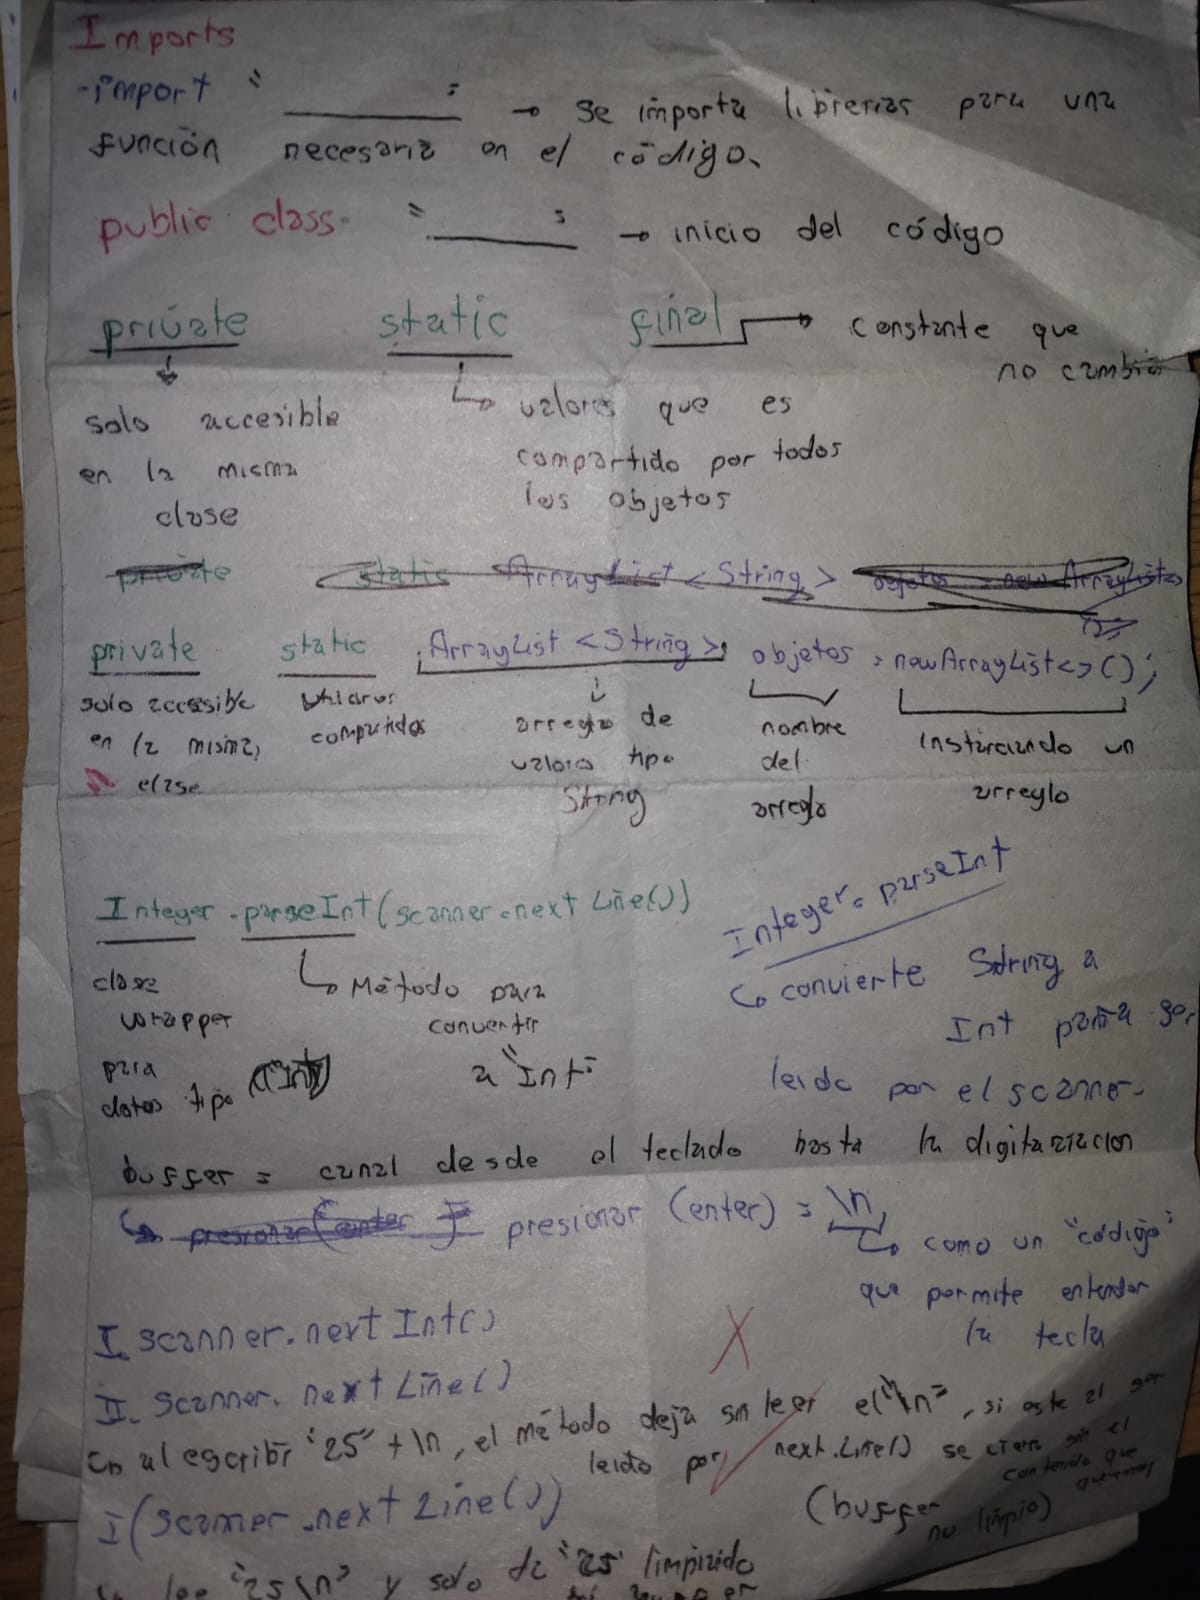 Imports
-import " ________ " → se importa librerias para una
función necesaria en el código.
public class " ________ " → inicio del código
private static final → constante que
no cambia
solo accesible
en la misma
clase
↳ valores que es
compartido por todos
los objetos
private static ArrayList <String> objetos = new ArrayList<>
private static ArrayList <String> objetos = newArrayList<>();
solo accesible
en la misma
clase
valores
compartidos
arreglo de
valores tipo
String
nombre
del
arreglo
Instanciando un
arreglo
Integer.parseInt(scanner.nextLine())
clase
wrapper
para
datos tipo (Int)
↳ Método para
convertir
a "Int"
Integer.parseInt
↳ convierte String a
Int para ser
leido por el scanner.
buffer = canal desde el teclado hasta la digitación
↳ presionar (enter) presionar (enter) = \n
↳ como un "código"
que permite entender
la tecla
I. scanner.nextInt()
X
II. Scanner.nextLine()
↳ al escribir "25" + \n, el método deja sin leer el "\n", si este al ser
leido por next.Line() se cierra sin el
contenido que
queremos
(buffer
no limpio)
I (Scanner.nextLine())
↳ lee "25\n" y solo da "25" limpiado